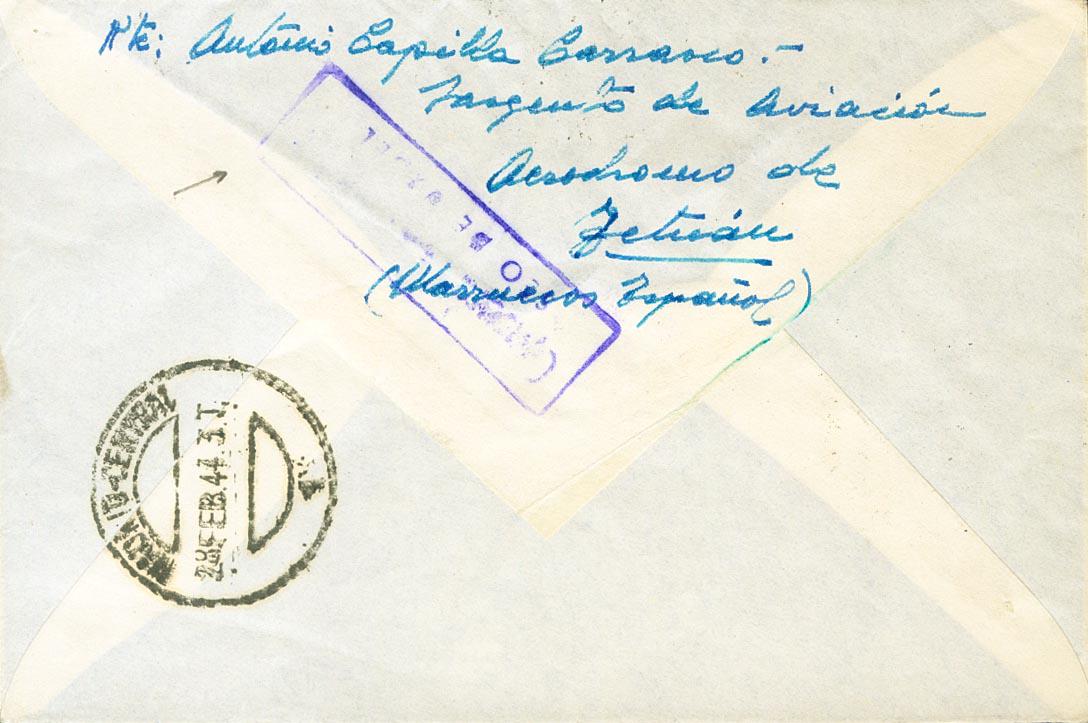 Rte: Antonio Capilla Carrasco.-
Sargento de Aviación
Aerodromo de
Tetuán
(Marruecos Español)
DE
MADRID-CENTRAL
28 FEB. 44. 3. T.